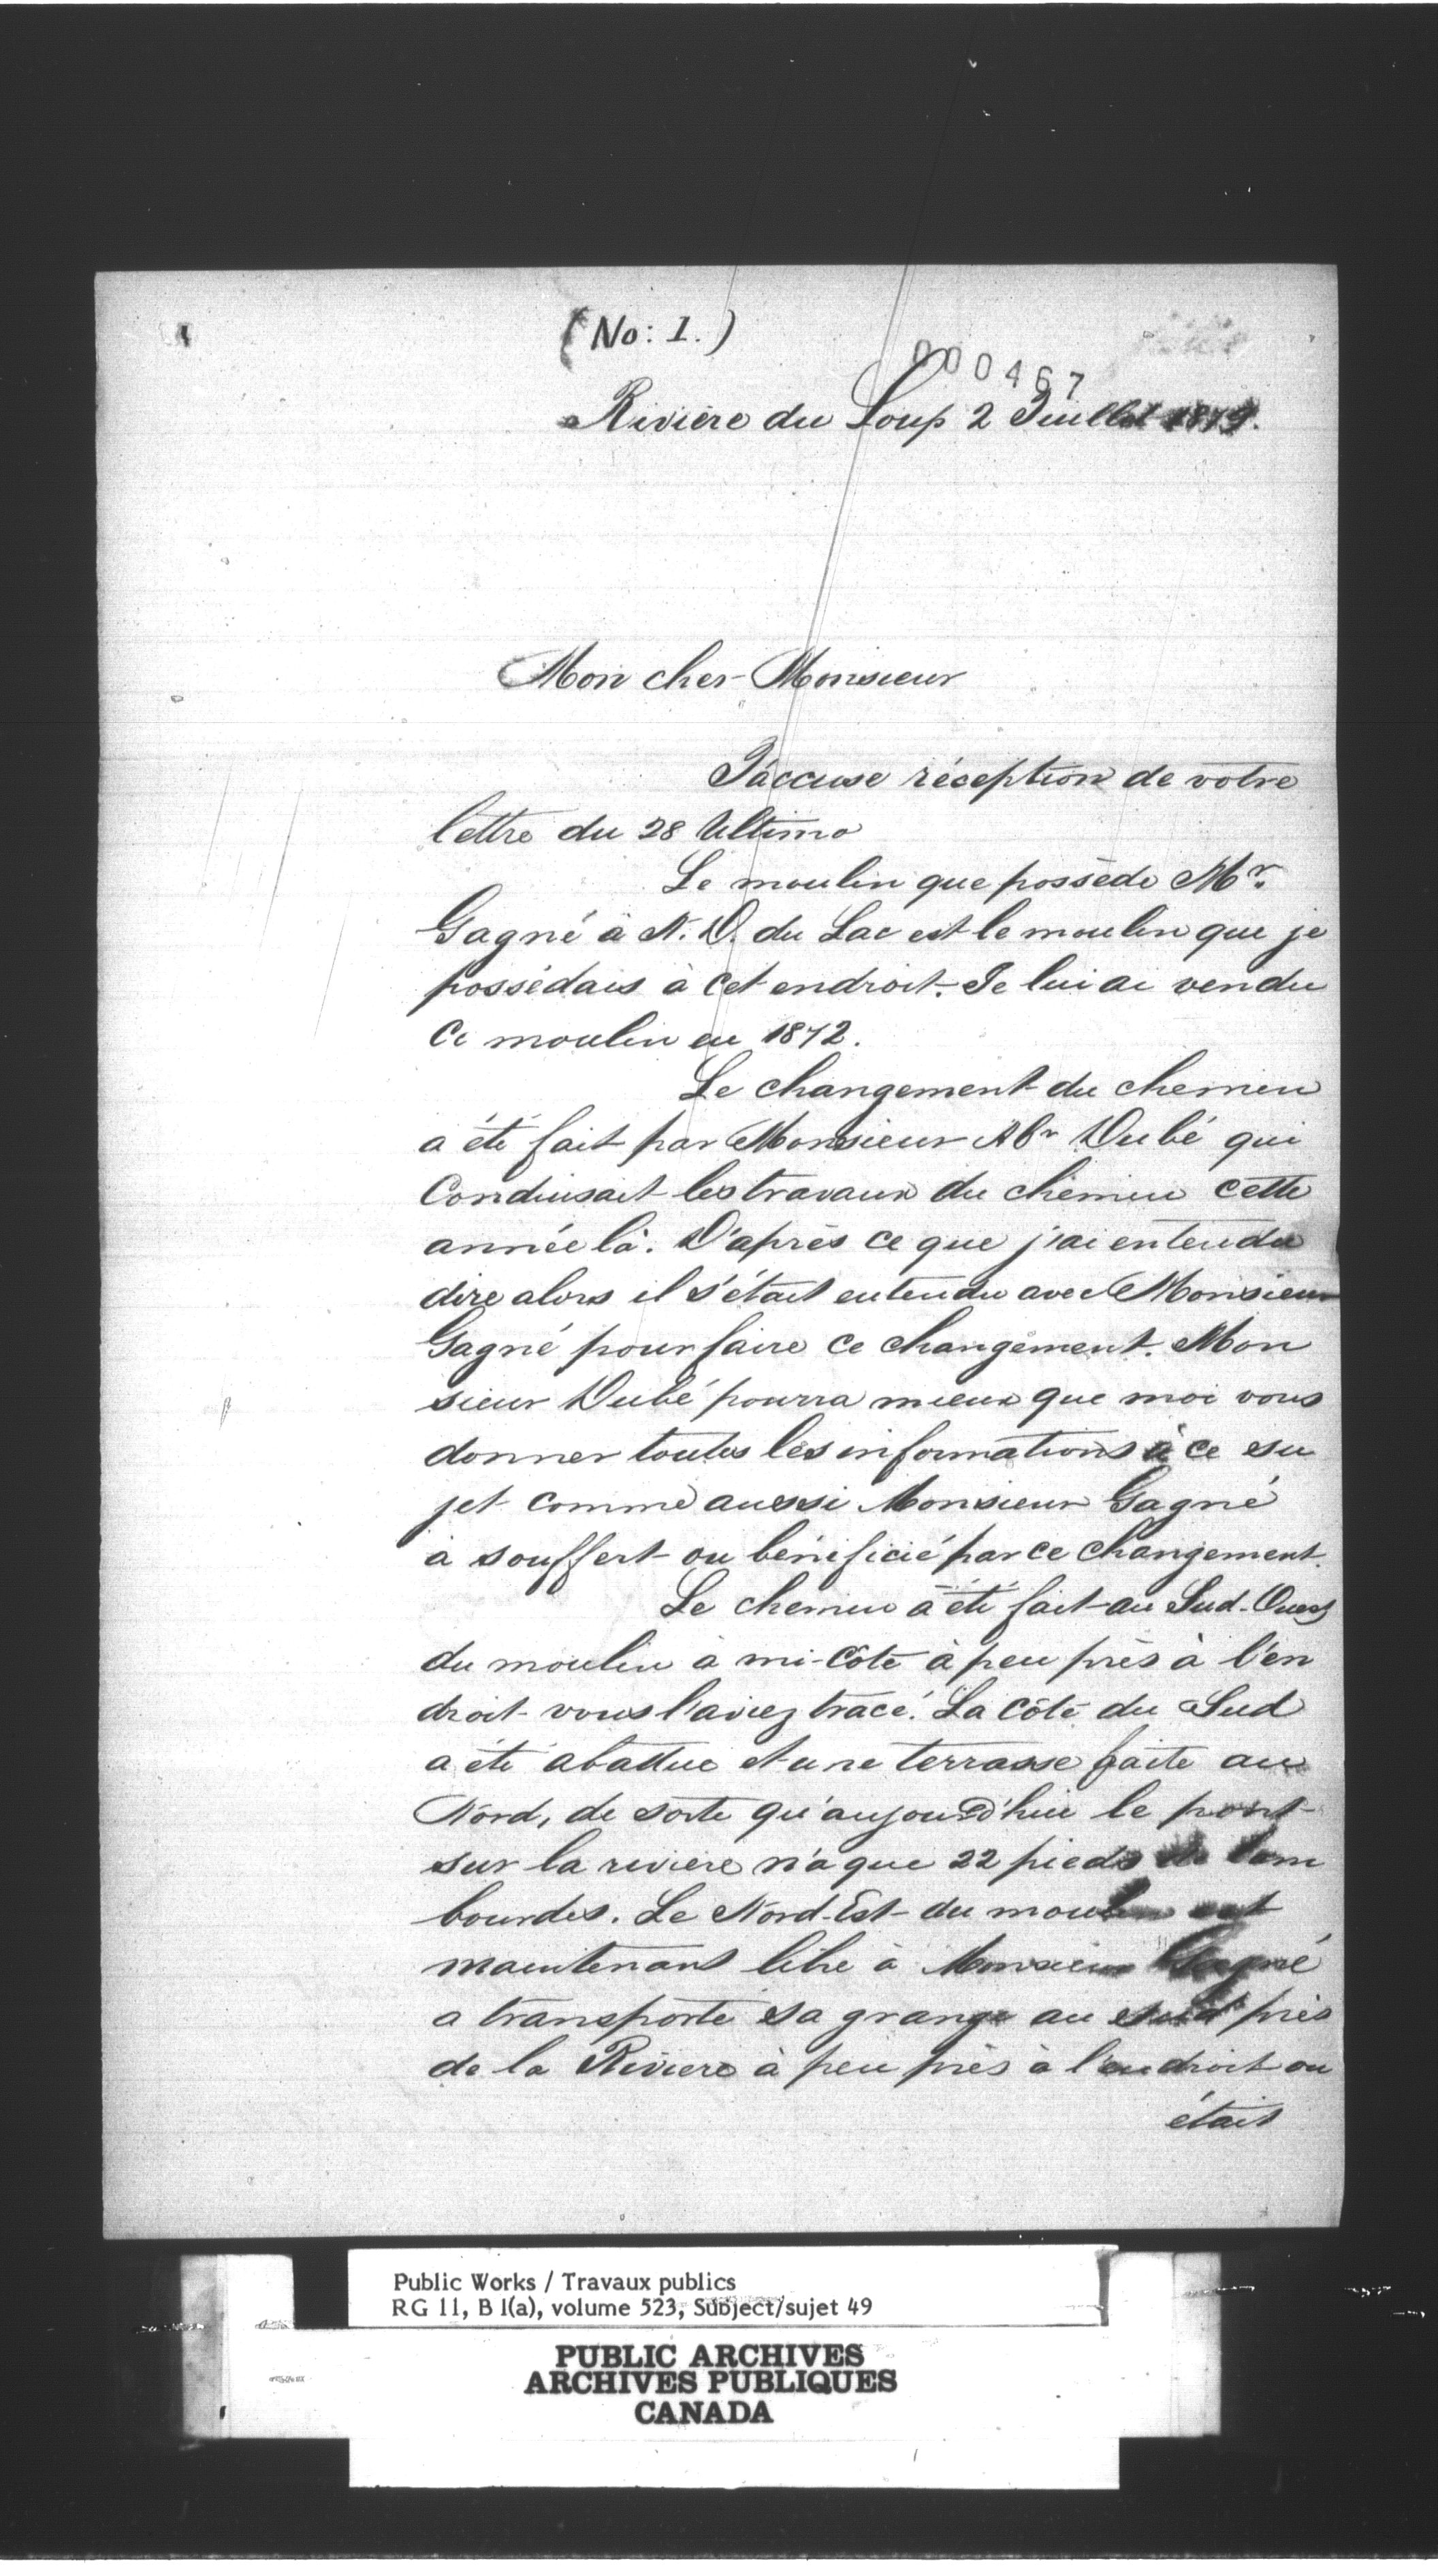 (No: 1.)
000467
Rivière du Loup 2 Juillet 1879.
Mon cher Monsieur
J'accuse réception de votre
lettre du 28 Ultimo
Le moulin que possède Mr.
Gagné à N. D. du Lac est le moulin que je
possédais à cet endroit. Je lui ai vendu
ce moulin en 1872.
Le changement du chemin
a été fait par Monsieur Abr Dubé qui
Conduisait les travaux du chemin cette
année là. D'après ce que j'ai entendu
dire alors il s'était entendu avec Monsieur
Gagné pour faire ce changement. Mon
sieur Dubé pourra mieux que moi vous
donner toutes les informations à ce su
jet comme aussi Monsieur Gagné
à souffert ou bénificié par ce changement.
Le chemin à été fait au Sud-Ouest
du moulin à mi-côte à peu près à l'en
droit vous l'aviez tracé. La côte du Sud
a été abattue et une terrasse faite au
Nord, de sorte qu'aujourd'hui le pont
sur la riviere n'a que 22 pieds de lam
bourdes. Le Nord-Est du moulin est
maintenant libre à Monsieur Gagné
a transporté sa grange au sud près
de la Rivière à peu près à l'endroit ou
était
Public Works / Travaux publics
RG 11, B 1(a), volume 523, Subject/sujet 49
PUBLIC ARCHIVES
ARCHIVES PUBLIQUES
CANADA